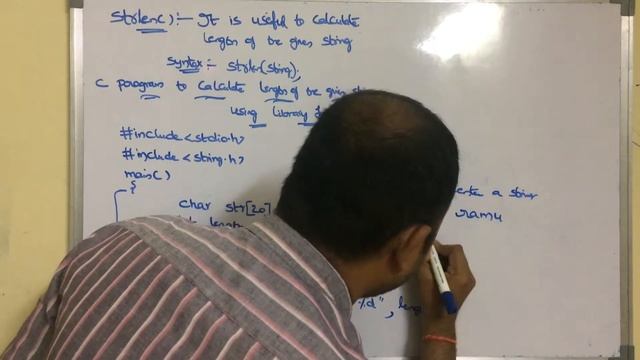 strlen():- It is useful to calculate
length of the given string
Syntax:- strlen(string);
C program to calculate length of the given
using library
#include<stdio.h>
#include<string.h>
main()
{
char str[20]
enter a string
ramu
%d", leng